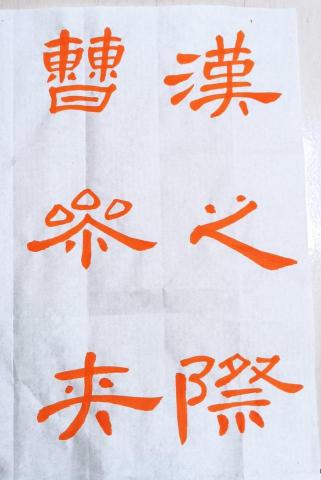 漢之際
曹參夾